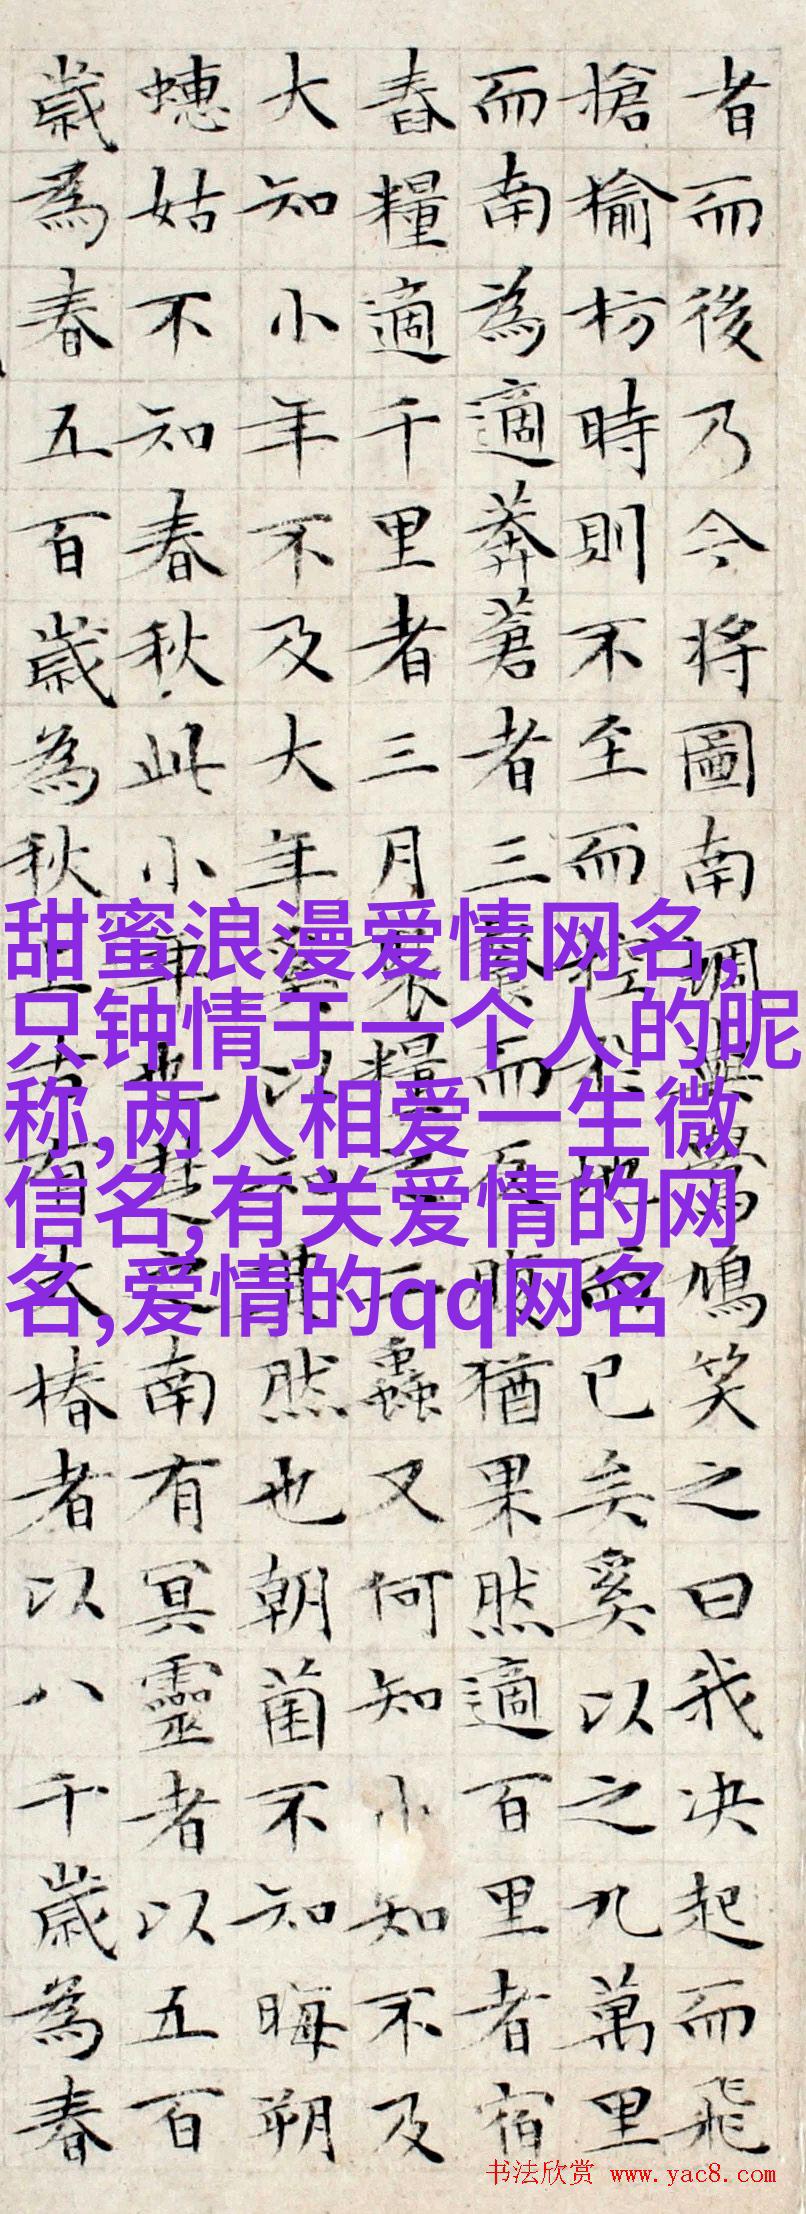 者而後乃今將圖南蜩與鷽鳩笑之曰我决起而飛
槍榆枋時則不至而控於地而已矣奚以之九萬里
而南為適莽蒼者三飡而反腹猶果然適百里者宿
舂糧適千里者三月聚糧之二蟲又何知小知不及
大知小年不及大年奚以知其然也朝菌不知晦朔
蟪蛄不知春秋此小年也楚之南有冥靈者以五百
歲為春五百歲為秋上古有大椿者以八千歲為春
甜蜜浪漫爱情网名,
只钟情于一个人的昵
称,两人相爱一生微
信名,有关爱情的网
名,爱情的qq网名
书法欣赏 www.yac8.com